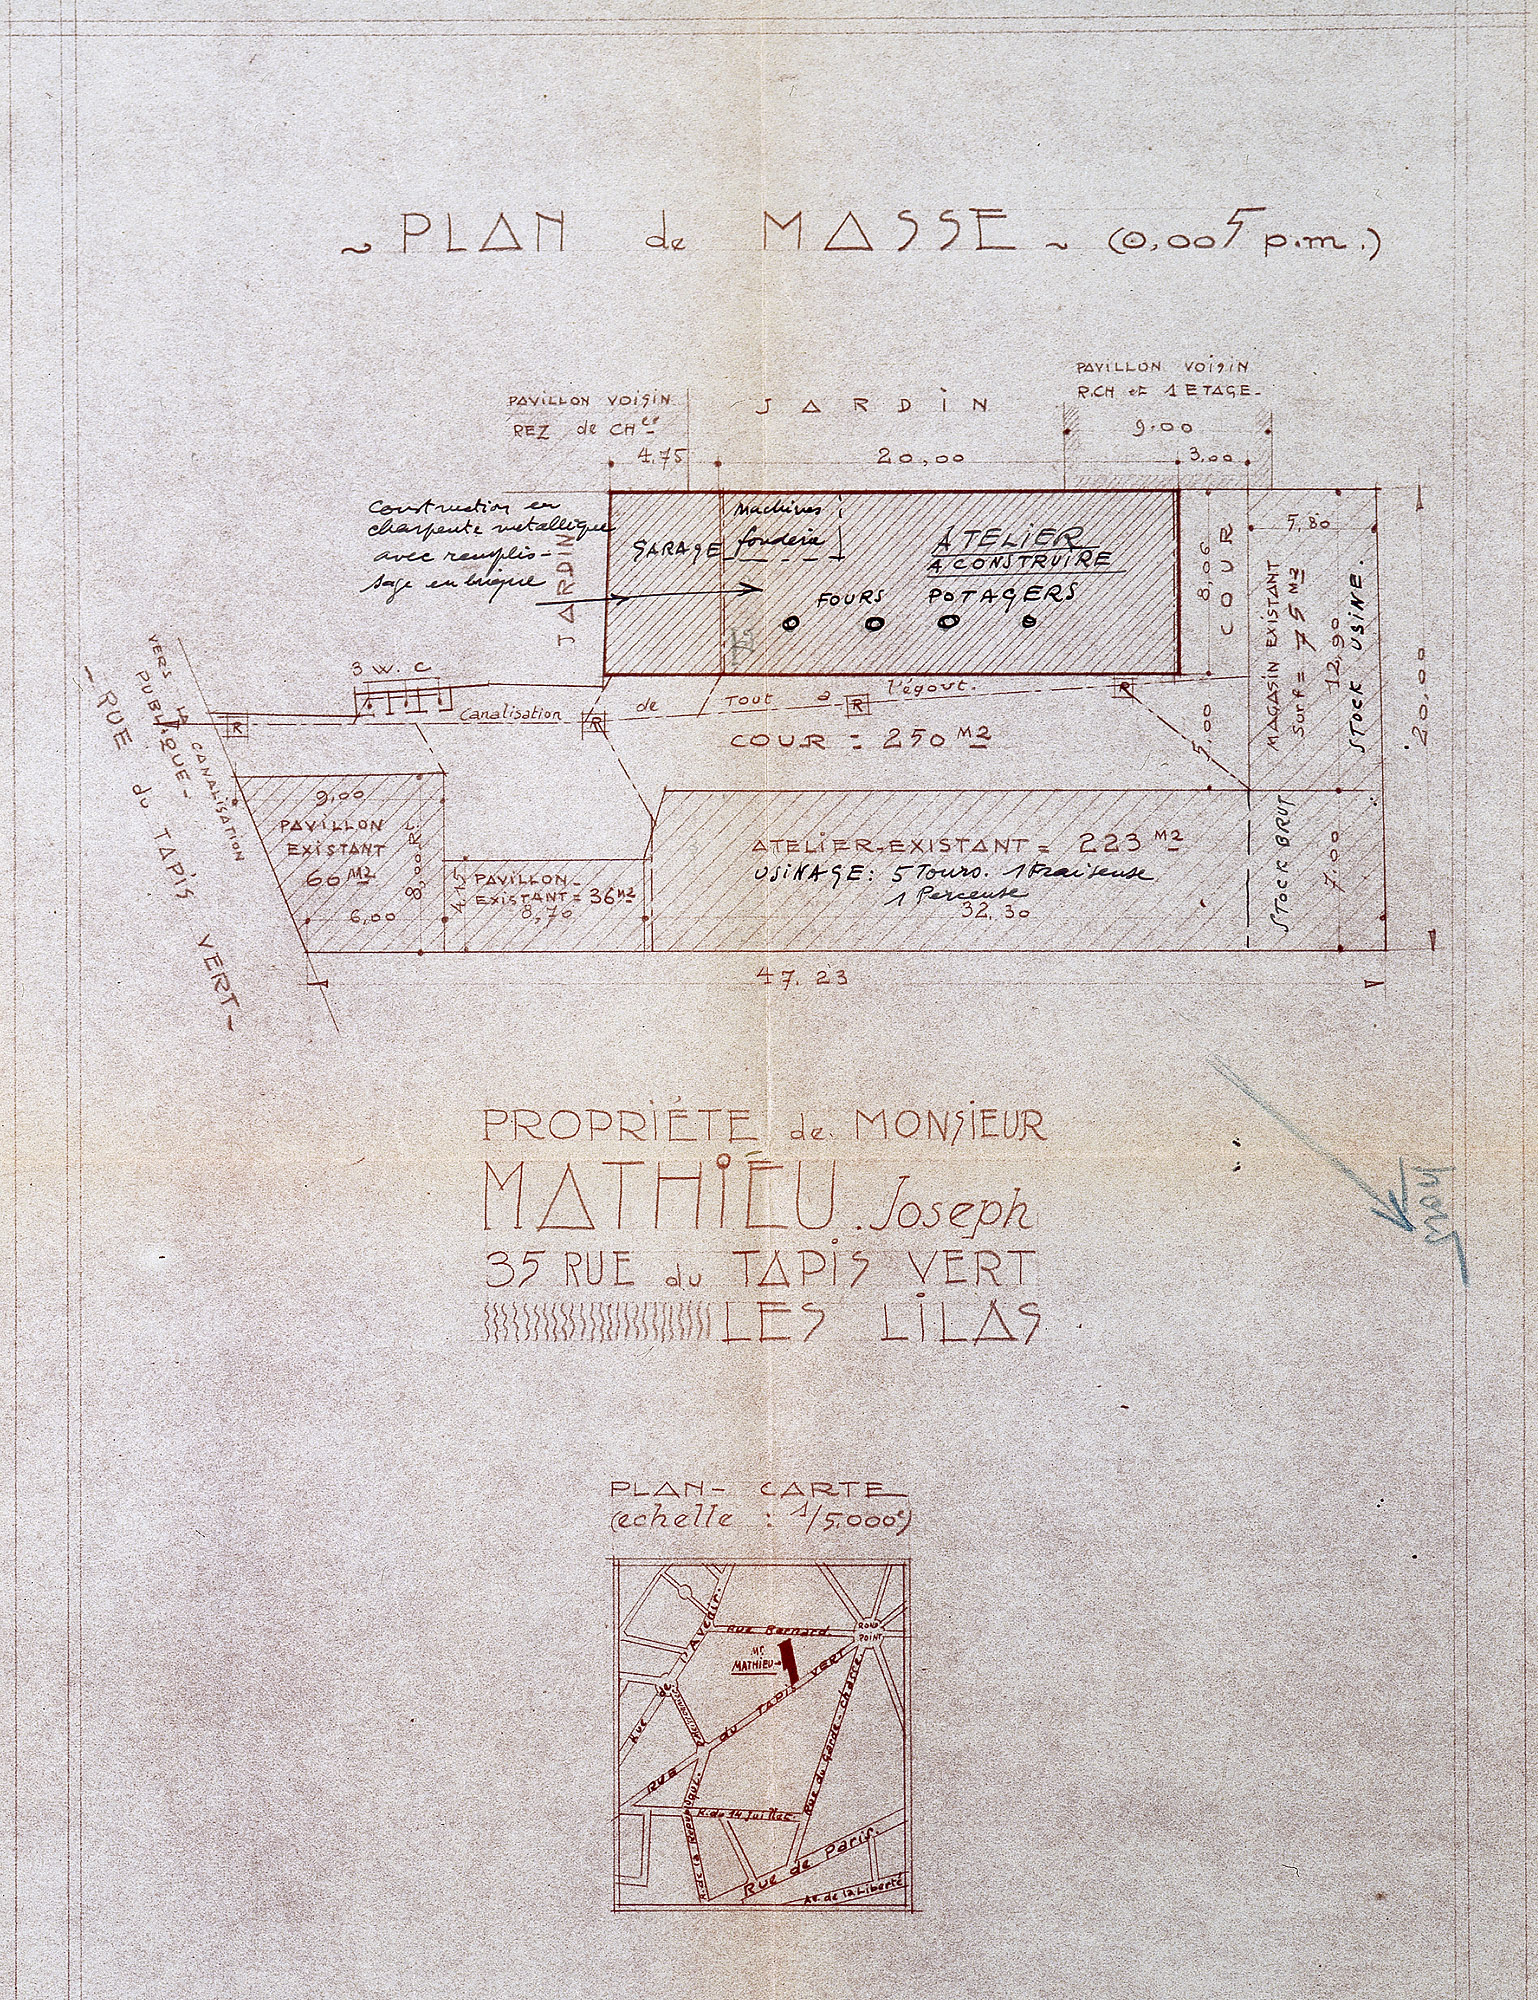 ~ PLAN de MASSE ~ (0,005 p.m.)
PAVILLON VOISIN
REZ de CHée
4,75
JARDIN
20,00
PAVILLON VOISIN
R.CH et 1 ETAGE.
9.00
3,00
Construction en
charpente metallique
avec remplis-
sage en brique
JARDIN
GARAGE
Machines
fonderie
ATELIER
A CONSTRUIRE
FOURS POTAGERS
8,06
COUR
5,80
MAGASIN EXISTANT
Surf = 75 M2
12,90
STOCK USINE.
20,00
3 W.C
R
Canalisation de Tout à l'égout.
R
R
R
COUR = 250 M2
5,00
VERS LA CANALISATION
PUBLIQUE-
- RUE du TAPIS VERT -
9,00
PAVILLON
EXISTANT
60 M2
6,00
4,15
PAVILLON-
EXISTANT = 36 M2
8,70
ATELIER-EXISTANT = 223 M2
USINAGE: 5 Tours. 1 Fraiseuse
1 Perceuse
32,30
STOCK BRUT
7.00
47.23
PROPRIÉTE de MONSIEUR
MATHIEU. Joseph
35 RUE du TAPIS VERT
LES LILAS
PLAN- CARTE
(echelle : 1/5.000e)
Rue Bernard.
ROND
POINT
Mr
MATHIEU
RUE du TAPIS VERT
Rue de l'Avenir.
Rue du Garde-chasse
R. du 14 Juillet.
R. de la Republique.
Rue de Paris.
Av. de la Liberté